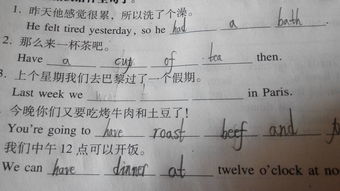 1. 昨天他感觉很累,所以洗了个澡。
He felt tired yesterday, so he had a bath.
2. 那么来一杯茶吧。
Have a cup of tea then.
上个星期我们去巴黎过了一个假期。
Last week we in Paris.
今晚你们又要吃烤牛肉和土豆了!
You're going to have roast beef and
我们中午 12 点可以开饭。
We can have dinner at twelve o'clock at no